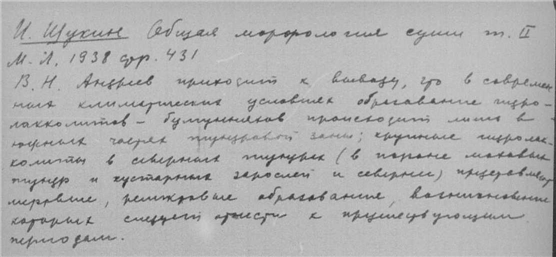 И. Щукин Общая морфология суши т. II
М.Л. 1938 стр. 431
В. Н. Андреев приходит к выводу, что в современ
ных климатических условиях образование гидро-
лакколитов – булгунняхов происходит лишь в
южных частях тундровой зоны; крупные гидролак-
колиты в северных тундрах (в районе моховых
тундр и кустарных зарослей и севернее) представляют
мертвые, реликтовые образования, возникновение
которых следует отнести к предшествующим
периодам.